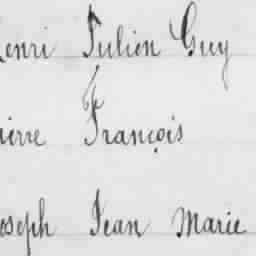 enri Julien Guy
ierre François
oseph Jean Marie